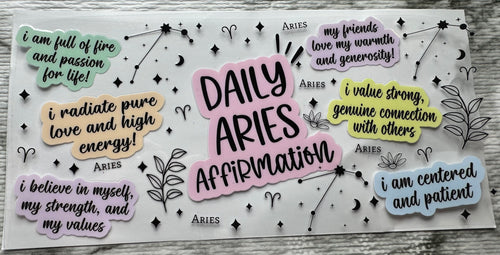 i am full of fire
and passion
for life!
i radiate pure
love and high
energy!
ARIES
i believe in myself,
my strength, and
my values
DAILY
ARIES
AFFiRMATiON
ARIES
ARIES
my friends
love my warmth
and generosity!
ARIES
i value strong,
genuine connection
with others
ARIES
i am centered
and patient